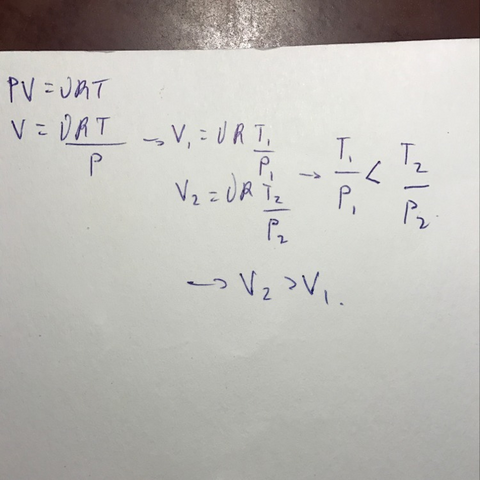 PV = νRT
V = νRT/P → V₁ = νR T₁/P₁
V₂ = νR T₂/P₂ → T₁/P₁ < T₂/P₂.
→ V₂ > V₁.